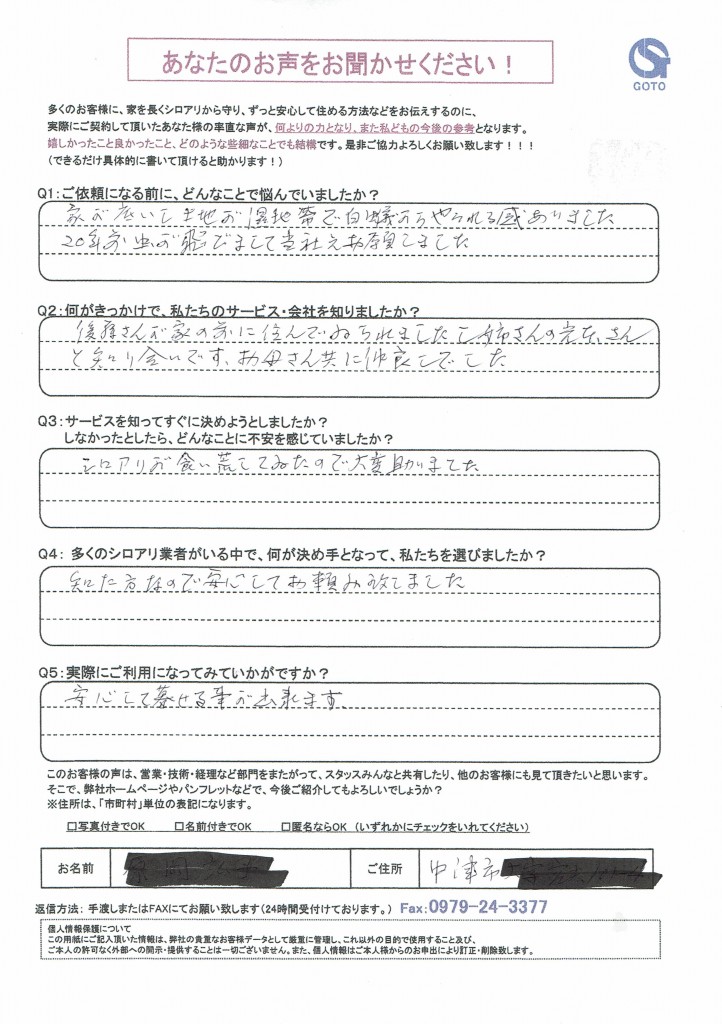 あなたのお声をお聞かせください！
GOTO
多くのお客様に、家を長くシロアリから守り、ずっと安心して住める方法などをお伝えするのに、
実際にご契約して頂いたあなた様の率直な声が、何よりの力となり、また私どもの今後の参考となります。
嬉しかったこと良かったこと、どのような些細なことでも結構です。是非ご協力よろしくお願い致します！！！
（できるだけ具体的に書いて頂けると助かります！）
Q1：ご依頼になる前に、どんなことで悩んでいましたか？
家が底いし土地が湿地帯で白蟻からやられる感ありました
20年前虫が飛びまして当社えお願しました
Q2：何がきっかけで、私たちのサービス・会社を知りましたか？
後藤さんが家の前に住んでおられましたし姉さんの さん
と知り合いです、お母さん共に仲良しでした
Q3：サービスを知ってすぐに決めようとしましたか？
しなかったとしたら、どんなことに不安を感じていましたか？
シロアリが食い荒してゐたので大変助りました
Q4： 多くのシロアリ業者がいる中で、何が決め手となって、私たちを選びましたか？
知た方なので安心してお頼み致しました
Q5：実際にご利用になってみていかがですか？
安心して暮せる事が出来ます、
このお客様の声は、営業・技術・経理など部門をまたがって、スタッスみんなと共有したり、他のお客様にも見て頂きたいと思います。
そこで、弊社ホームページやパンフレットなどで、今後ご紹介してもよろしいでしょうか？
※住所は、「市町村」単位の表記になります。
□写真付きでOK □名前付きでOK □匿名ならOK （いずれかにチェックをいれてください）
お名前 ご住所 中津市
返信方法： 手渡しまたはFAXにてお願い致します（24時間受付けております。） Fax:0979-24-3377
個人情報保護について
この用紙にご記入頂いた情報は、弊社の貴重なお客様データとして厳重に管理し、これ以外の目的で使用すること及び、
ご本人の許可なく外部への開示・提供することは一切ございません。また、個人情報はご本人様からのお申出により訂正・削除致します。